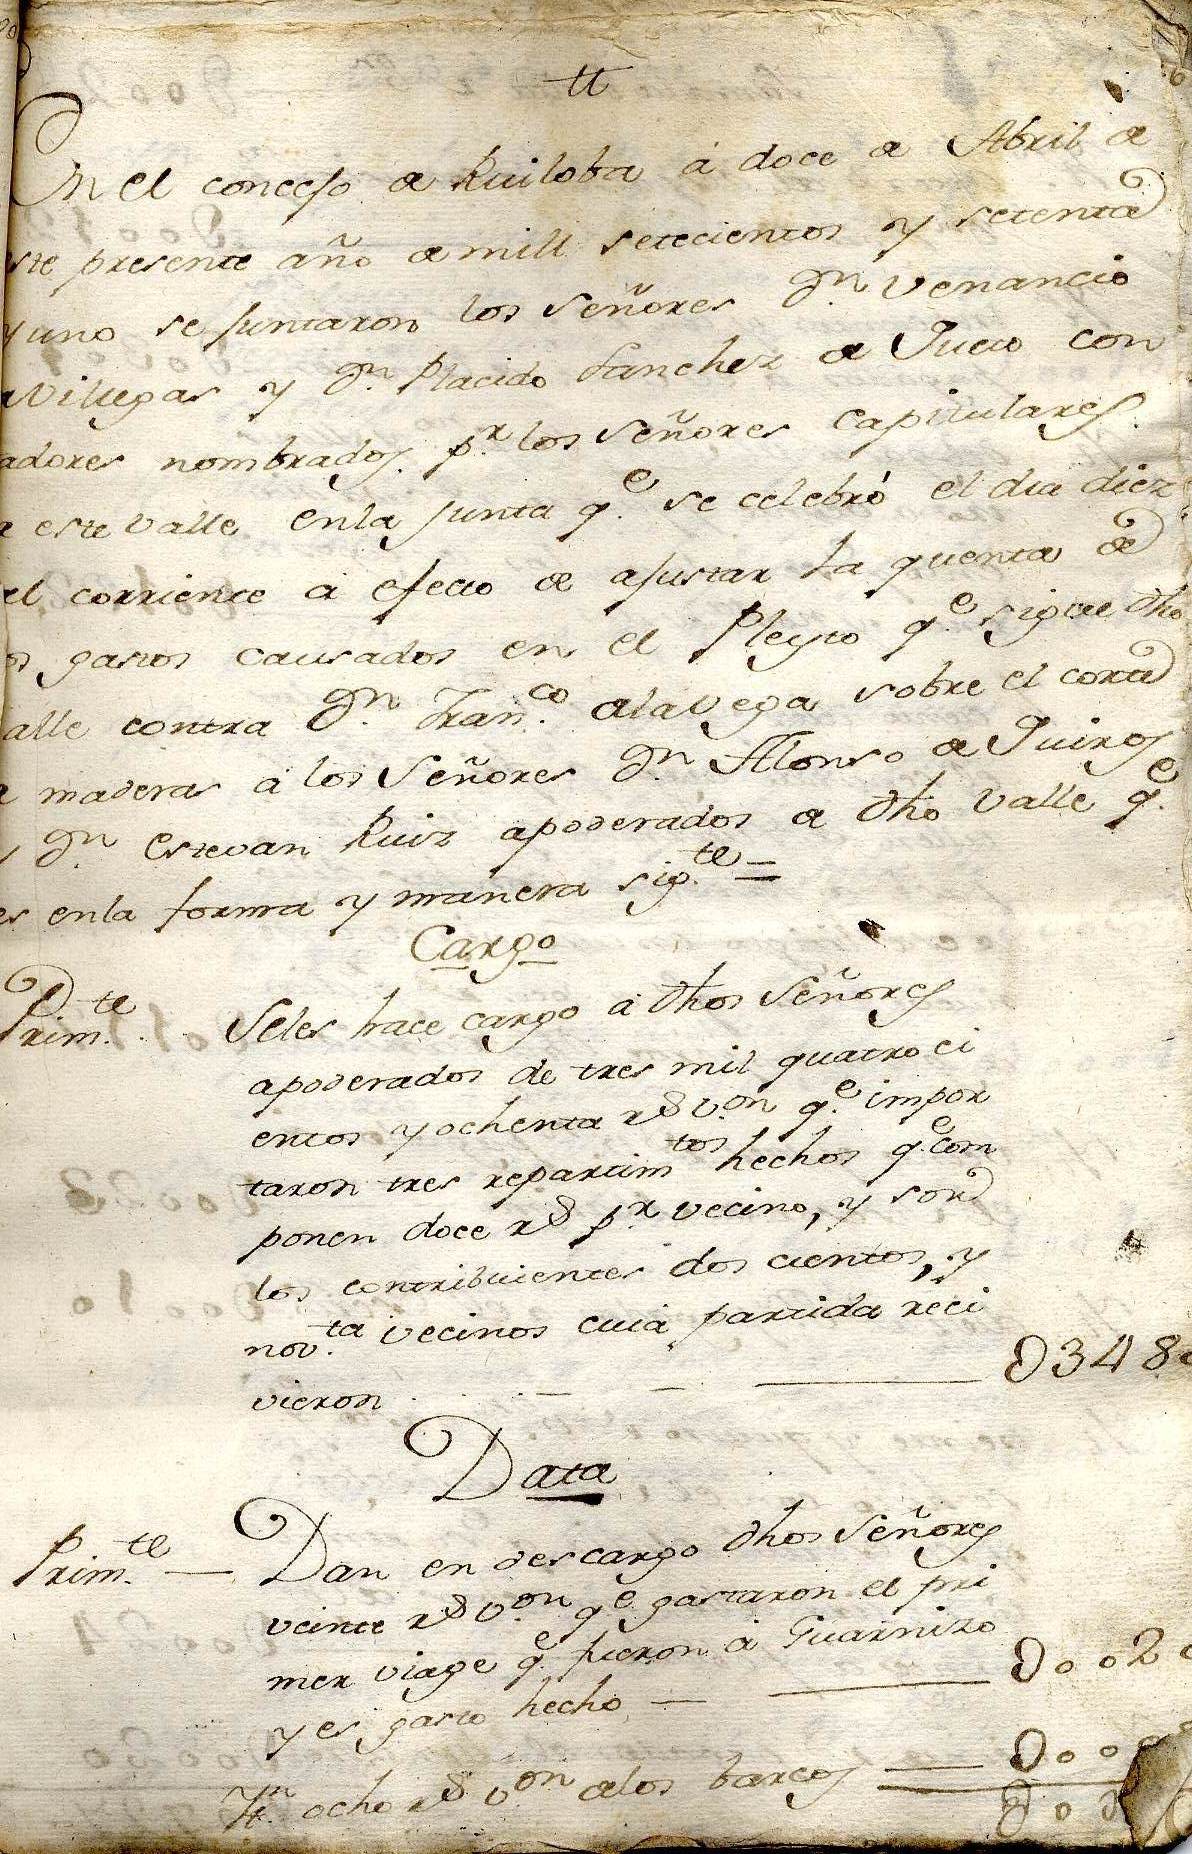 tt
En el concejo de Ruiloba á doce de Abril de
ste presente año de mill setecientos y setenta
y uno se juntaron los Señores Dn. Venancio
Villegas y Dn. Placido Sanchez de Queto con
adores nombrados pr. los Señores Capitulares
este Valle en la junta qe. se celebró el dia diez
el corriente a efecto de ajustar la quenta de
os gastos causados en el Pleyto qe. sigue dho
alle contra Dn. Franco. de la Vega sobre el corte
maderas a los Señores Dn. Alonso de Quiros
Dn. Estevan Ruiz apoderados de dho Valle qe.
es en la forma y manera sigte. =
Cargo
Primte. Se les hace cargo a dhos Señores
apoderados de tres mil quatro ci
entos y ochenta rs von qe. impor
taron tres repartimtos. hechos qe. com
ponen doce rs pr. vecino, y son
los contribuientes dos cientos, y
novta. vecinos cuia partida reci
vieron D348
Data
Primte. — Dan en descargo dhos Señores
veinte rs von qe. gastaron el pri
mer viage qe. fueron a Guarnizo
y es gasto hecho — D002
Yt. ocho rs von a los barcos — D00